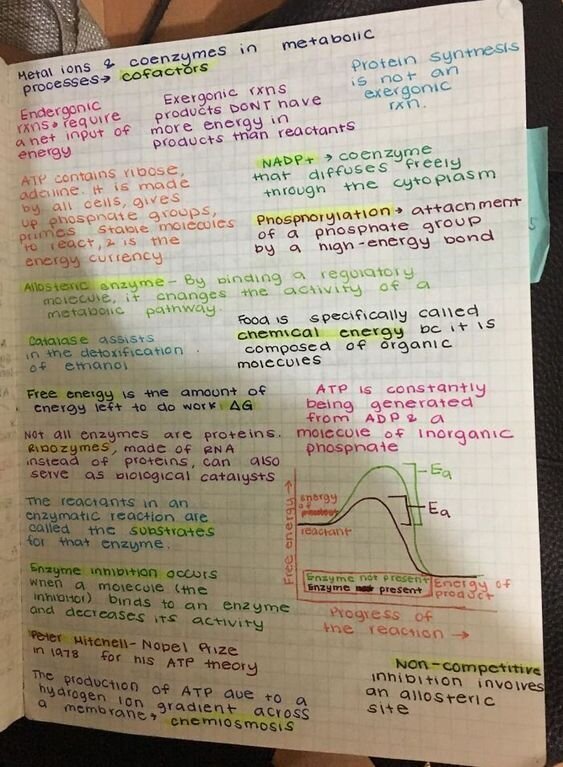 Metal ions & coenzymes in metabolic
processes → cofactors
Protein synthesis
is not an
exergonic
rxn.
Endergonic
rxns → require
a net input of
energy
Exergonic rxns
products DONT have
more energy in
products than reactants
ATP contains ribose,
adenine. It is made
by all cells, gives
up phosphate groups,
primes stable molecules
to react, & is the
energy currency
NADP+ → coenzyme
that diffuses freely
through the cytoplasm
Phosphorylation → attachment
of a phosphate group
by a high-energy bond
Allosteric enzyme - By binding a regulatory
molecule, it changes the activity of a
metabolic pathway.
Catalase assists
in the detoxification
of ethanol
Food is specifically called
chemical energy bc it is
composed of organic
molecules
Free energy is the amount of
energy left to do work ΔG
ATP is constantly
being generated
from ADP & a
molecule of inorganic
phosphate
Not all enzymes are proteins.
Ribozymes, made of RNA
instead of proteins, can also
serve as biological catalysts
The reactants in an
enzymatic reaction are
called the substrates
for that enzyme.
Free energy →
energy
of
reactant
Ea
Ea
Enzyme not present
Enzyme present
Energy of
product
Progress of
the reaction →
Enzyme inhibition occurs
when a molecule (the
inhibitor) binds to an enzyme
and decreases its activity
Peter Mitchell - Nobel Prize
in 1978 for his ATP theory
The production of ATP due to a
hydrogen ion gradient across
a membrane → chemiosmosis
Non-competitive
inhibition involves
an allosteric
site